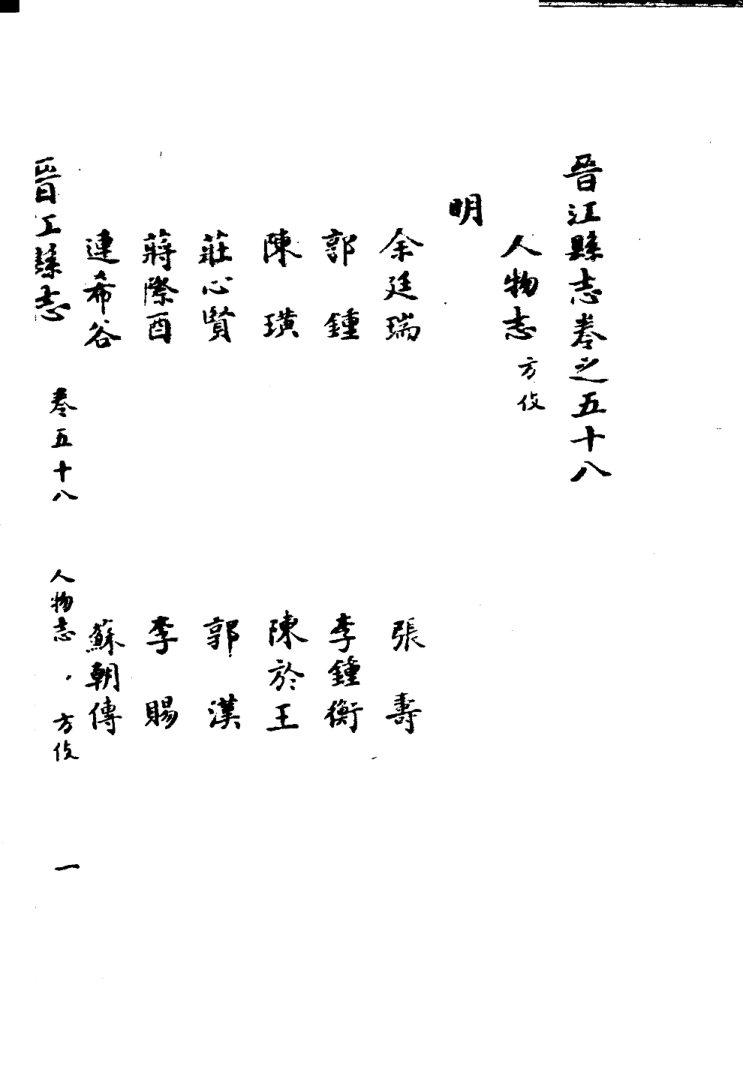 晉江縣志卷之五十八
人物志 方伎
明
余廷瑞 張壽
郭鍾 李鍾衡
陳璜 陳於王
莊心賢 郭漢
蔣際酉 李賜
連希谷 蘇朝傳
晉江縣志 卷五十八 人物志·方伎 一